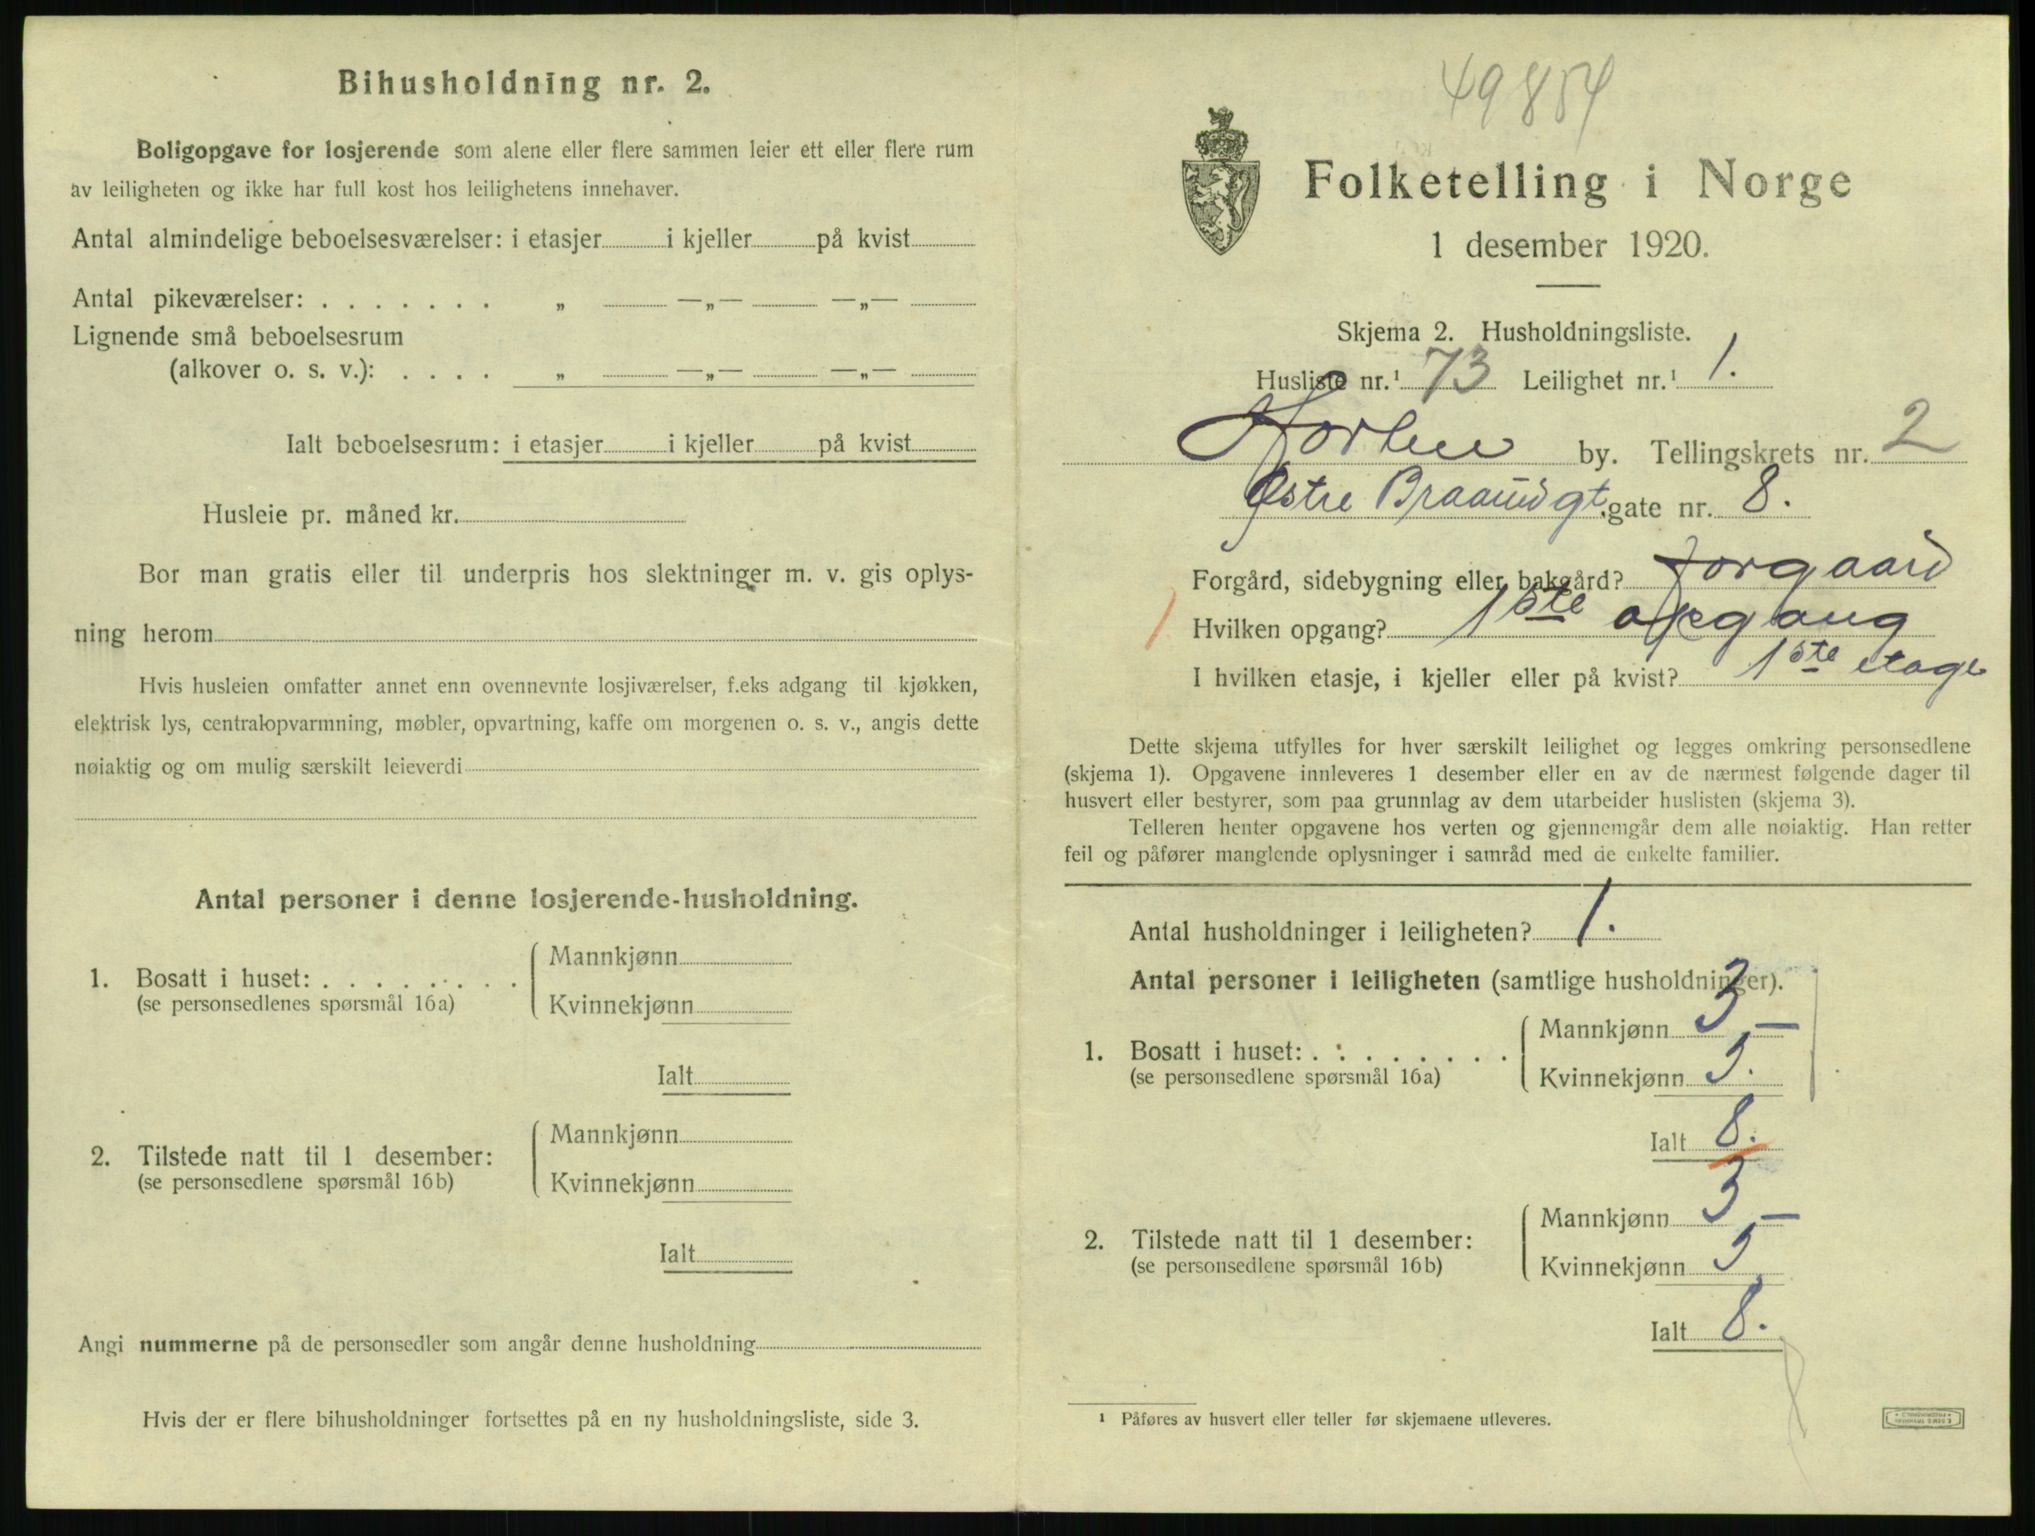 Bihusholdning nr. 2.
Boligopgave for losjerende som alene eller flere sammen leier ett eller flere rum
av leiligheten og ikke har full kost hos leilighetens innehaver.
Antal almindelige beboelsesværelser: i etasjer i kjeller på kvist
Antal pikeværelser: . . . . . . . „ —„— —„—
Lignende små beboelsesrum
(alkover o. s. v.): . . . . „ —„— —„—
Ialt beboelsesrum: i etasjer i kjeller på kvist
Husleie pr. måned kr.
Bor man gratis eller til underpris hos slektninger m. v. gis oplys-
ning herom
Hvis husleien omfatter annet enn ovennevnte losjiværelser, f.eks adgang til kjøkken,
elektrisk lys, centralopvarmning, møbler, opvartning, kaffe om morgenen o. s. v., angis dette
nøiaktig og om mulig særskilt leieverdi
Antal personer i denne losjerende-husholdning.
1. Bosatt i huset: . . . . . . . . Mannkjønn
(se personsedlenes spørsmål 16a) Kvinnekjønn
Ialt
2. Tilstede natt til 1 desember: Mannkjønn
(se personsedlene spørsmål 16b) Kvinnekjønn
Ialt
Angi nummerne på de personsedler som angår denne husholdning
Hvis der er flere bihusholdninger fortsettes på en ny husholdningsliste, side 3.
49854
Folketelling i Norge
1 desember 1920.
Skjema 2. Husholdningsliste.
Husliste nr.¹ 73 Leilighet nr.¹ 1.
Horten by. Tellingskrets nr. 2
Østre Braaudgt. gate nr. 8.
Forgård, sidebygning eller bakgård? forgaard
Hvilken opgang? 1ste opgang
I hvilken etasje, i kjeller eller på kvist? 1ste etage
Dette skjema utfylles for hver særskilt leilighet og legges omkring personsedlene
(skjema 1). Opgavene innleveres 1 desember eller en av de nærmest følgende dager til
husvert eller bestyrer, som paa grunnlag av dem utarbeider huslisten (skjema 3).
Telleren henter opgavene hos verten og gjennemgår dem alle nøiaktig. Han retter
feil og påfører manglende oplysninger i samråd med de enkelte familier.
Antal husholdninger i leiligheten? 1.
Antal personer i leiligheten (samtlige husholdninger).
1. Bosatt i huset: . . . . . . . . Mannkjønn 3 —
(se personsedlene spørsmål 16a) Kvinnekjønn 5.
Ialt 8.
2. Tilstede natt til 1 desember: Mannkjønn 3 —
(se personsedlene spørsmål 16b) Kvinnekjønn 5
Ialt 8.
¹ Påføres av husvert eller teller før skjemaene utleveres.